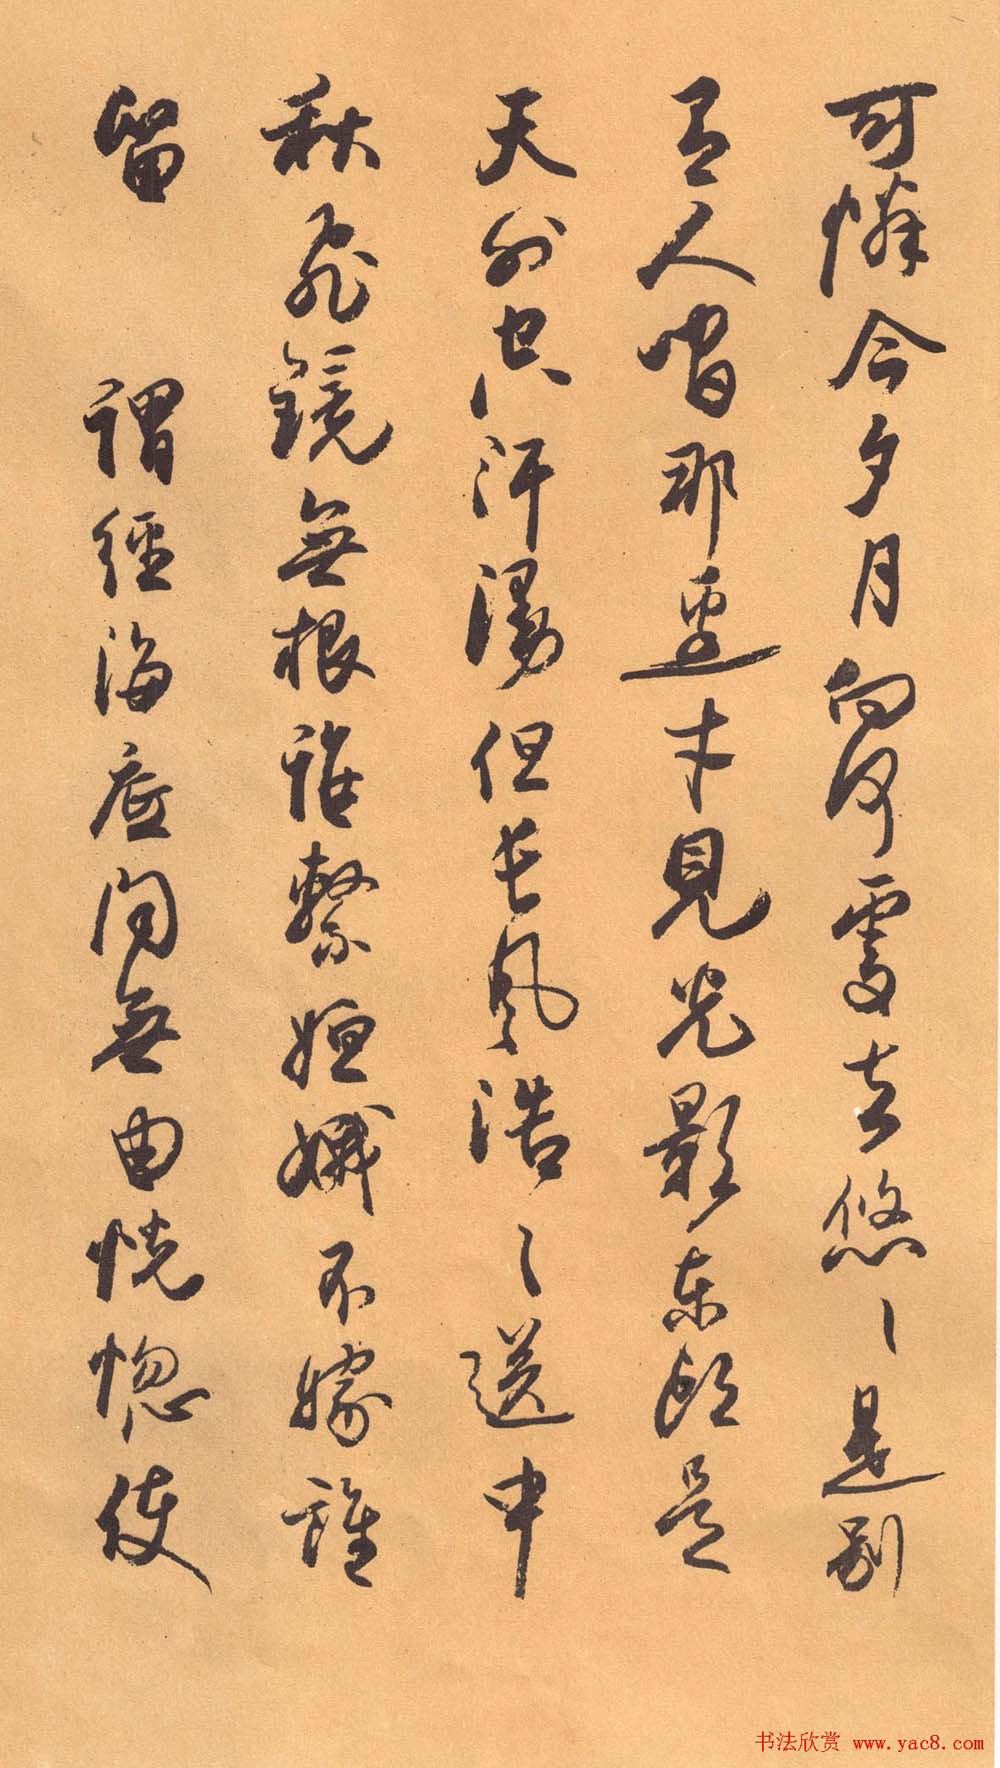 可憐今夕月向何處去悠〻是别
有人間那邊才見光影東頭是
天外空汗漫但長風浩〻送中
秋飛鏡無根誰繫姮娥不嫁誰
留 謂經海底問無由恍惚使
书法欣赏 www.yac8.com